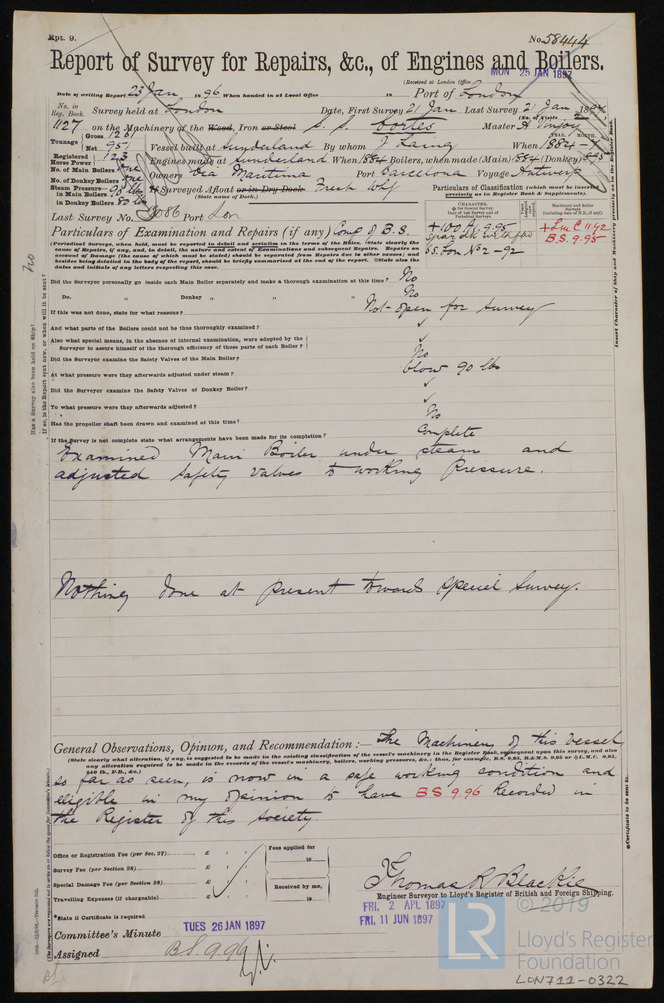 Rpt. 9.
No. 58444
Report of Survey for Repairs, &c., of Engines and Boilers.
(Received at London Office
MON 25 JAN 1897
Date of writing Report 23 Jan 1896 When handed in at Local Office 18 Port of London
No. in Reg. Book. Survey held at London Date, First Survey 21 Jan Last Survey 21 Jan
(No. of Visits
1127 on the Machinery of the Wood, Iron or Steel S. S. Cortes Master
Tonnage Gross 1281 Net 951 Vessel built at Sunderland By whom J. Laing When 1884
YEAR. MONTH.
Registered Horse Power 123 Engines made at Sunderland When 1884 Boilers, when made (Main) 1884 (Donkey)
No. of Main Boilers One Owners Cia Maritima Port Barcelona Voyage Antwerp
No. of Donkey Boilers One
Steam Pressure in Main Boilers 90 lbs If Surveyed Afloat or in Dry Dock Fresh Whf
in Donkey Boilers 80 lbs (State name of Dock.)
Particulars of Classification (which must be inserted precisely as in Register Book & Supplements).
Last Survey No. 3086 Port Lon
Particulars of Examination and Repairs (if any) Comp of B.S.
CHARACTER.
Machinery and Boiler Surveys
+ 100 A1 9.95
spar dk with fbd
SS. Lon No 2 - 92
+ LMC 11.92
B.S. 9.95
(Periodical Surveys, when held, must be reported in detail and seriatim in the terms of the Rules. State clearly the
cause of Repairs, if any, and, in detail, the nature and extent of Examinations and subsequent Repairs. Repairs on
account of Damage (the cause of which must be stated) should be separated from Repairs due to other causes; and
besides being detailed in the body of the report, should be briefly summarised at the end of the report. State also the
dates and initials of any letters respecting this case.
Did the Surveyor personally go inside each Main Boiler separately and make a thorough examination at this time? No
Do. „ Donkey „ „ „ No
If this was not done, state for what reasons? Not open for survey
And what parts of the Boilers could not be thus thoroughly examined?
Also what special means, in the absence of internal examination, were adopted by the
Surveyor to assure himself of the thorough efficiency of those parts of each Boiler?
Did the Surveyor examine the Safety Valves of the Main Boiler? No
At what pressure were they afterwards adjusted under steam? blow 90 lbs
Did the Surveyor examine the Safety Valves of Donkey Boiler?
To what pressure were they afterwards adjusted?
Has the propeller shaft been drawn and examined at this time? No
If the Survey is not complete state what arrangements have been made for its completion? Complete
Examined Main Boiler under steam and
adjusted safety valves to working pressure.
Nothing done at present towards special survey.
General Observations, Opinion, and Recommendation:— The Machinery of this Vessel,
(State clearly what alteration, if any, is suggested to be made in the existing classification of the vessel's machinery in the Register Book, consequent upon this survey, and also
any alteration required to be made in the records of the vessel's machinery, boilers, working pressures, &c.: thus, for example, B.S. 9,95, B.&M.S. 9,95 or L.M.C. 9,95,
so far as seen, is now in a safe working condition and
eligible in my opinion to have BS 9.96 recorded in
the Register of this Society
Office or Registration Fee (per Sec. 27) £ : :
Survey Fee (per Section 28) £ : :
Special Damage Fee (per Section 28) £ : :
Travelling Expenses (if chargeable) £ : :
Fees applied for
18
Received by me,
18
Thomas R Blackie
Engineer Surveyor to Lloyd's Register of British and Foreign Shipping.
*State if Certificate is required
FRI. 2 APL 1897
FRI. 11 JUN 1897
Committee's Minute TUES 26 JAN 1897
Assigned B.S. 9.96
Has a Survey also been held on Ship? No
If so, is the Report sent now, or when will it be sent?
Insert Character of Ship and Machinery precisely as in the Register Book.
© 2019
LR
Lloyd's Register
Foundation
LON711-0322